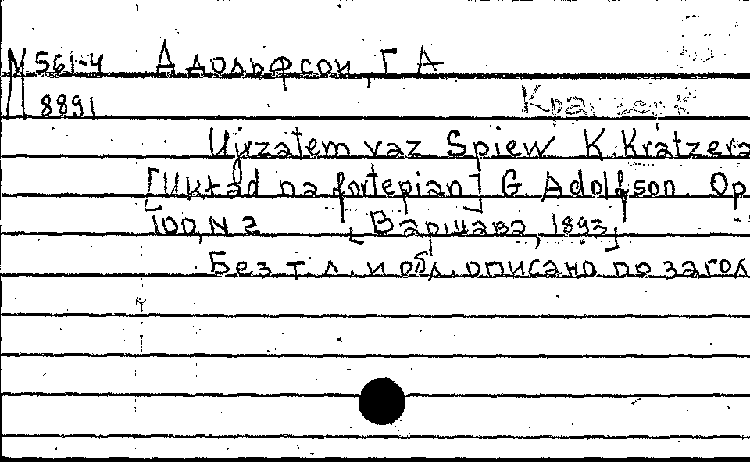 М 561-4 Адольфсон, Г А
8891
Ujrzałem raz Spiew K. Kratzera
[Układ na fortepian] G Adolfson Op
100, N 2 [Варшава, 1893]
Без т. л. и обл. описано по загол